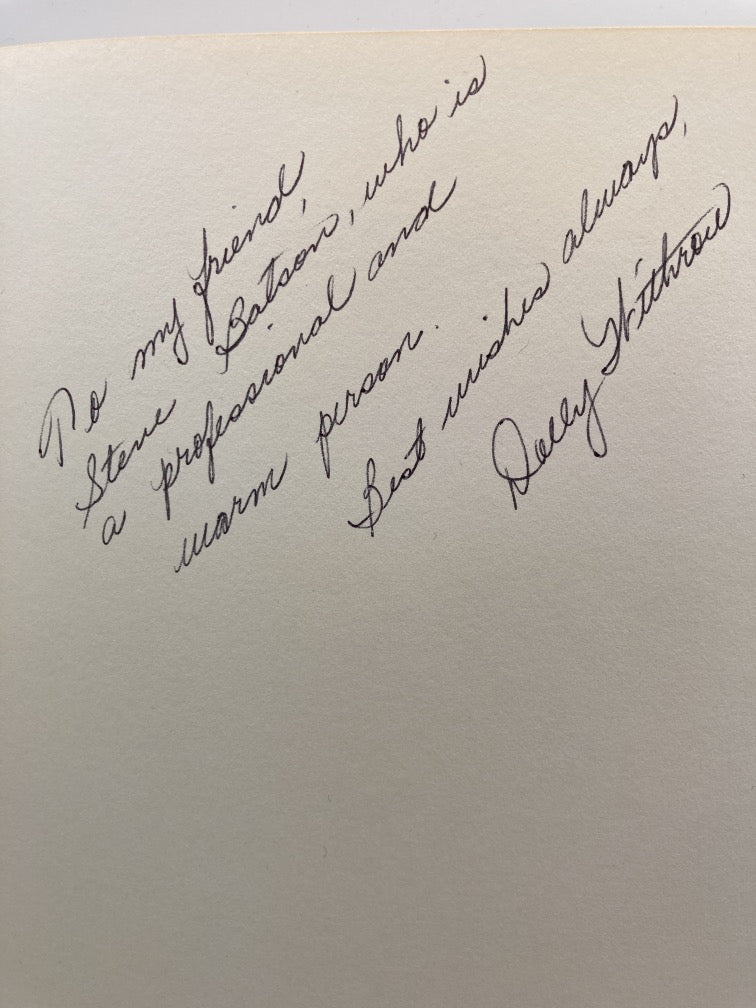 To my friend,
Steve Batson, who is
a professional and
warm person.
Best wishes always,
Dolly Withrow